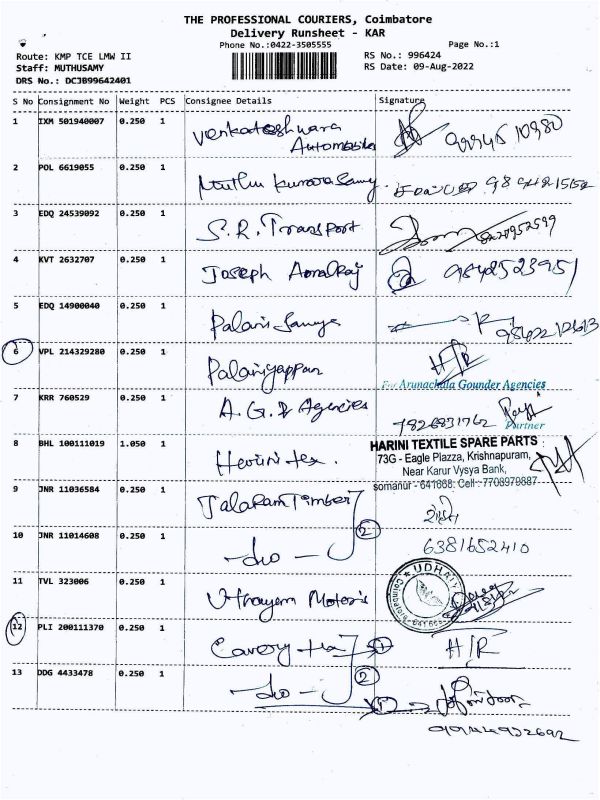 THE PROFESSIONAL COURIERS, Coimbatore
Delivery Runsheet - KAR
Phone No.:0422-3505555 Page No.:1
Route: KMP TCE LMW II RS No.: 996424
Staff: MUTHUSAMY RS Date: 09-Aug-2022
DRS No.: DCJB99642401
S No Consignment No Weight PCS Consignee Details Signature
1 IXM 501940007 0.250 1 Venkateshwara
Automobiles
2 POL 6619055 0.250 1 Muthu Kumara Samy
3 EDQ 24539092 0.250 1 S.R. Transport 8220952599
4 KVT 2632707 0.250 1 Joseph 9842523951
5 EDQ 14900040 0.250 1 Palani
6 VPL 214329280 0.250 1 Palaniyappan H/R
For Arunachala Gounder Agencies
7 KRR 760529 0.250 1 A.G. Agencies 7826831762
Partner
8 BHL 100111019 1.050 1 HARINI TEXTILE SPARE PARTS
73G - Eagle Plazza, Krishnapuram,
Near Karur Vysya Bank,
somanur - 641668. Cell : 7708979887
9 JNR 11036584 0.250 1 Jalaram Timber
10 JNR 11014608 0.250 1 - do - 2 6381652410
UDHAYA
Coimbatore
11 TVL 323006 0.250 1 Uthayam Motors
12 PLI 200111370 0.250 1 Cavery tex 1 H/R
13 DDG 4433478 0.250 1 - do - 2
9944922692